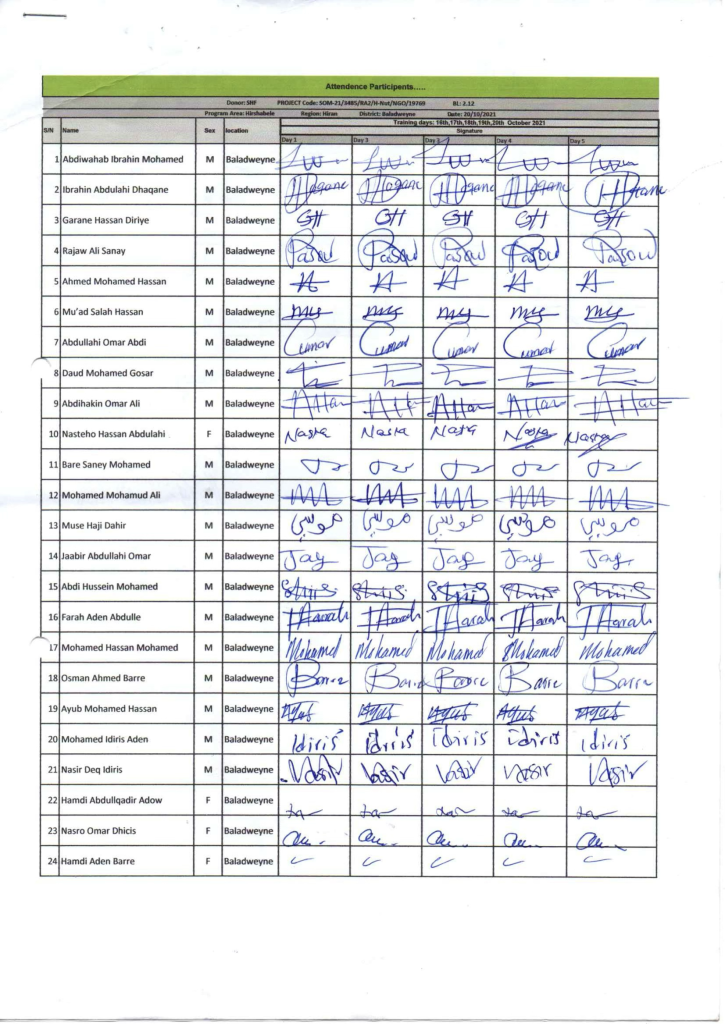 Attendence Participents.....
Donor: SHF PROJECT Code: SOM-21/3485/RA2/H-Nut/NGO/19769 BL: 2.12
Program Area: Hirshabele Region: Hiran District: Baladweyne Date: 20/10/2021
Training days: 16th,17th,18th,19th,20th October 2021
S/N Name Sex location Signature
Day 1 Day 2 Day 3 Day 4 Day 5
1 Abdiwahab Ibrahin Mohamed M Baladweyne
2 Ibrahin Abdulahi Dhaqane M Baladweyne
3 Garane Hassan Diriye M Baladweyne GH GH GH GH GH
4 Rajaw Ali Sanay M Baladweyne
5 Ahmed Mohamed Hassan M Baladweyne A A A A A
6 Mu'ad Salah Hassan M Baladweyne
7 Abdullahi Omar Abdi M Baladweyne Cumar Cumar Cumar Cumar Cumar
8 Daud Mohamed Gosar M Baladweyne
9 Abdihakin Omar Ali M Baladweyne
10 Nasteho Hassan Abdulahi F Baladweyne Nasra Nasra Nasra Nasra Nasra
11 Bare Saney Mohamed M Baladweyne
12 Mohamed Mohamud Ali M Baladweyne
13 Muse Haji Dahir M Baladweyne موسى موسى موسى موسى موسى
14 Jaabir Abdullahi Omar M Baladweyne Jag Jag Jag Jag Jag
15 Abdi Hussein Mohamed M Baladweyne
16 Farah Aden Abdulle M Baladweyne
17 Mohamed Hassan Mohamed M Baladweyne Mohamed Mohamed Mohamed Mohamed Mohamed
18 Osman Ahmed Barre M Baladweyne
19 Ayub Mohamed Hassan M Baladweyne Ayub Ayub Ayub Ayub Ayub
20 Mohamed Idiris Aden M Baladweyne Idiris Idiris Idiris Idiris Idiris
21 Nasir Deq Idiris M Baladweyne Nasir Nasir Nasir Nasir Nasir
22 Hamdi Abdullqadir Adow F Baladweyne
23 Nasro Omar Dhicis F Baladweyne
24 Hamdi Aden Barre F Baladweyne